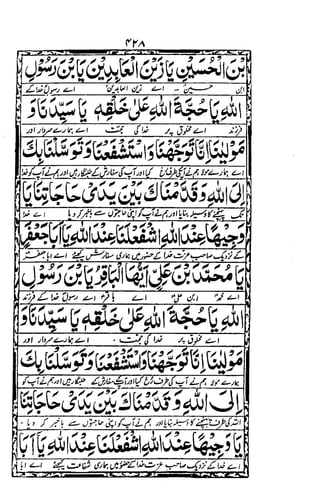 ۴۲۸
بْنَ الْحُسَيْنِ يَا زَيْنَ الْعَابِدِيْنَ يَا بْنَ رَسُوْلِ
ابن حسین اے زین العابدین اے رسول خدا کے
اللهِ يَا حُجَّةَ اللهِ عَلٰى خَلْقِهٖ يَا سَيِّدَنَا وَ
فرزند اے مخلوق پر خدا کی حجت اے ہمارے سردار اور
مَوْلٰينَا اِنَّا تَوَجَّهْنَا وَاسْتَشْفَعْنَا وَتَوَسَّلْنَا بِكَ
اے ہمارے مولا ہم نے آپکی طرف رخ کیا اور آپ کی سفارش کے طلبگار ہیں اور ہم نے آپ کو خدا
اِلَى اللهِ وَقَدَّمْنَاكَ بَيْنَ يَدَىْ حَاجَاتِنَا يَا
تک پہنچنے کا وسیلہ بنایا اور ہم نے آپ کو اپنی حاجتوں سے باخبر کر دیا اے خدا
وَجِيْهًا عِنْدَ اللهِ اشْفَعْ لَنَا عِنْدَ اللهِ يَا اَبَا جَعْفَرٍ
کے نزدیک صاحب عزت خدا کے حضور میں ہماری سفارش کیجئے اے ابا جعفر
يَا مُحَمَّدَ بْنَ عَلِيٍّ اَيُّهَا الْبَاقِرُ يَا بْنَ رَسُوْلِ
اے محمد ابن علی اے باقر اے رسول خدا کے فرزند
اللهِ يَا حُجَّةَ اللهِ عَلٰى خَلْقِهٖ يَا سَيِّدَنَا وَ
اے مخلوق پر خدا کی حجت اے ہمارے سردار اور
مَوْلٰينَا اِنَّا تَوَجَّهْنَا وَاسْتَشْفَعْنَا وَتَوَسَّلْنَا بِكَ
ہمارے مولا ہم نے آپ کی طرف رخ کیا اور آپکی سفارش کے طلبگار ہیں اور ہم نے آپ کو
اِلَى اللهِ وَقَدَّمْنَاكَ بَيْنَ يَدَىْ حَاجَاتِنَا
اللہ کی طرف پہنچنے کا وسیلہ بنایا اور ہم نے آپ کو اپنی حاجتوں سے باخبر کر دیا
يَا وَجِيْهًا عِنْدَ اللهِ اشْفَعْ لَنَا عِنْدَ اللهِ يَا اَبَا
اے خدا کے نزدیک صاحب عزت خدا کے حضور میں ہماری شفاعت کیجئے اے ابا